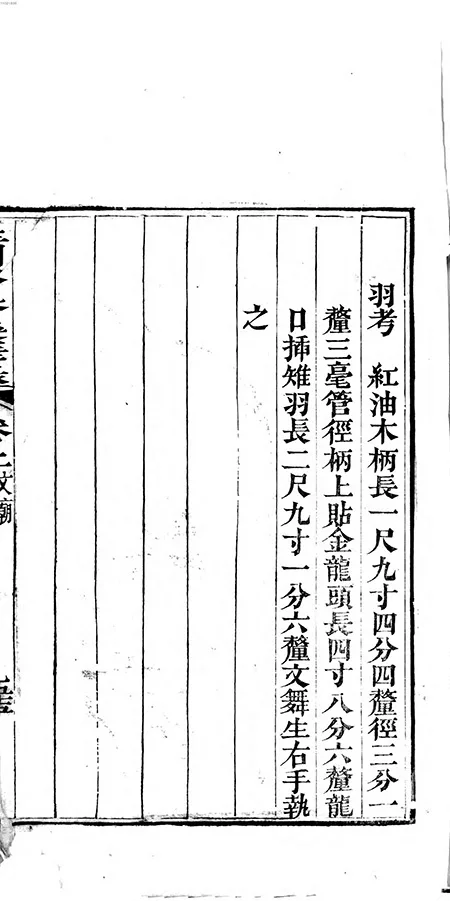 羽考　紅油木柄長一尺九寸四分四釐徑三分一
釐三毫管徑柄上貼金龍頭長四寸八分六釐龍
口挿雉羽長二尺九寸一分六釐文舞生右手執
之
文廟